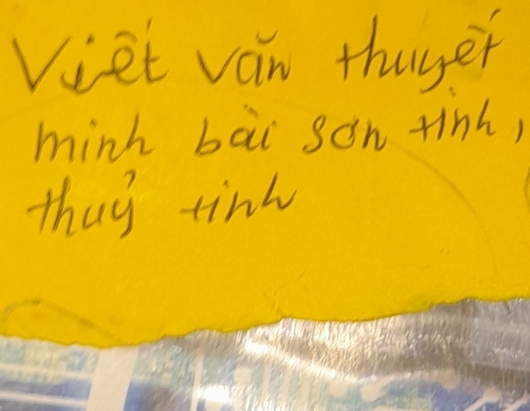 Viết văn thuyết
minh bài sơn tinh,
thuỷ tinh